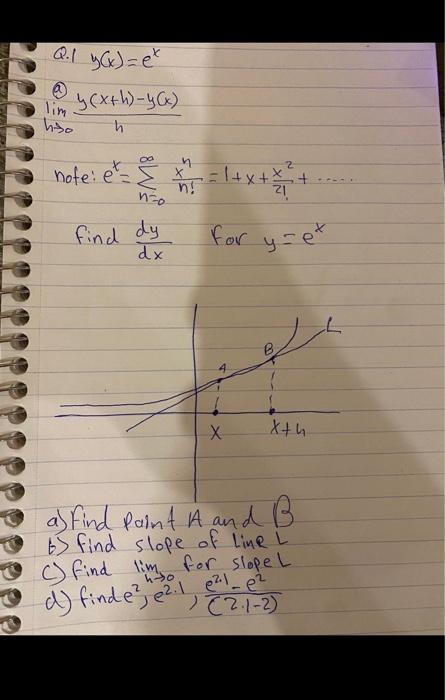 Q.1 y(x) = e^x
(a)
lim h→0 (y(x+h) - y(x)) / h
note: e^x = ∑ n=0 ∞ x^n / n! = 1 + x + x^2 / 2! + .....
find dy/dx for y = e^x
L
B
A
x x+h
a) Find point A and B
b) find slope of line L
c) find lim h→0 for slope L
d) find e^2, e^2.1, (e^2.1 - e^2) / (2.1-2)